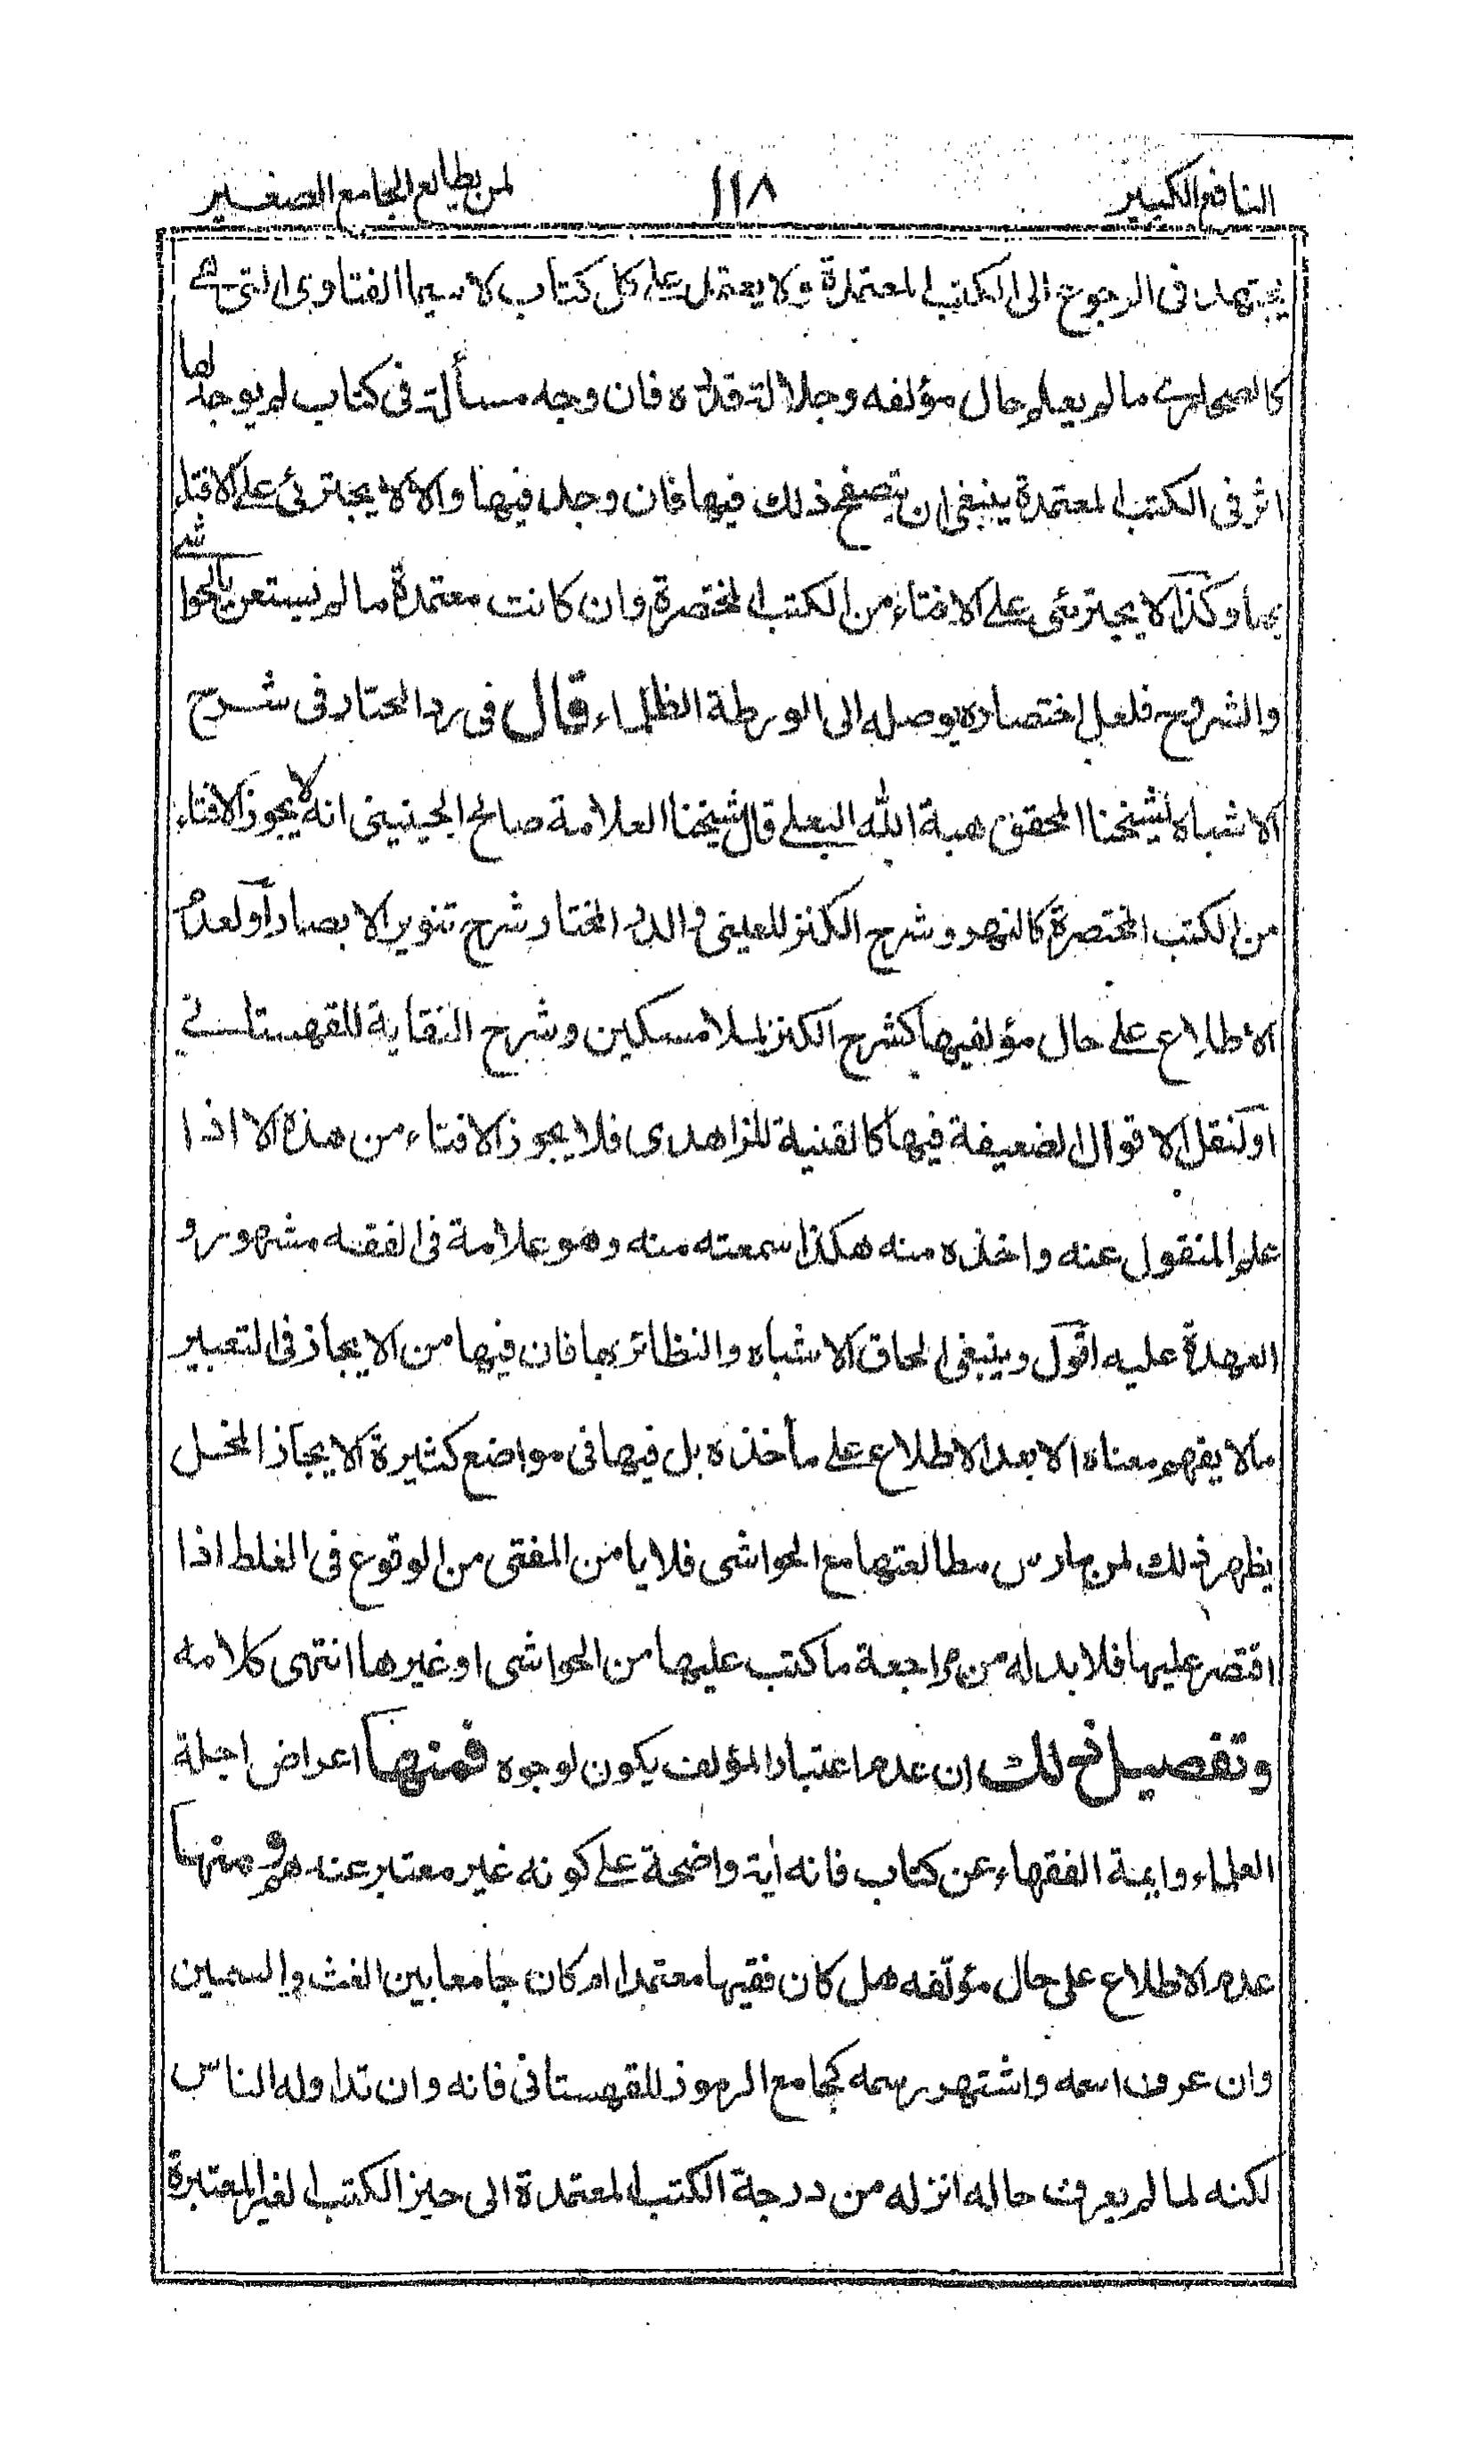 النافع الكبير ١١٨ لمن يطالع الجامع الصغير
يجتهد فى الرجوع الى الكتب المعتمدة ولا يعتمد على كل كتاب لا سيما الفتاوى التى هى
كالصحارى ما لم يعلم حال مؤلفه وجلالة قدره فان وجد مسألة فى كتاب لم يوجد لها
اثر فى الكتب المعتمدة ينبغى ان يتصفح ذلك فيها فان وجد فيها والا لا يجترئ على الافتاء
بها وكذا لا يجترئ على الافتاء من الكتب المختصرة وان كانت معتمدة ما لم يستعن بالحواشى
والشروح فلعل اختصاره يوصله الى الورطة الظلماء قال فى رد المحتار فى شرح
الاشباه لشيخنا المحقق هبة الله البعلى قال شيخنا العلامة صالح الجينينى انه لا يجوز الافتاء
من الكتب المختصرة كالنهر وشرح الكنز للعينى والدر المختار شرح تنوير الابصار او لعدم
الاطلاع على حال مؤلفيها كشرح الكنز لملا مسكين وشرح النقاية للقهستانى
او لنقل الاقوال الضعيفة فيها كالقنية للزاهدى فلا يجوز الافتاء من هذه الا اذا
علم المنقول عنه واخذه منه هكذا سمعته منه وهو علامة فى الفقه مشهور و
العهدة عليه اقول وينبغى الحاق الاشباه والنظائر بها فان فيها من الايجاز فى التعبير
ما لا يفهم معناه الا بعد الاطلاع على مأخذه بل فيها فى مواضع كثيرة الايجاز المخل
يظهر ذلك لمن مارس مطالعتها مع الحواشى فلا يامن المفتى من الوقوع فى الغلط اذا
اقتصر عليها فلا بد له من مراجعة ما كتب عليها من الحواشى او غيرها انتهى كلامه
وتفصيل ذلك ان عدم اعتبار المؤلف يكون لوجوه فمنها اعراض اجلة
العلماء وايمة الفقهاء عن كتاب فانه أية واضحة على كونه غير معتبر عندهم ومنها
عدم الاطلاع على حال مؤلفه هل كان فقيها معتمدا ام كان جامعا بين الغث والسمين
وان عرف اسمه واشتهر رسمه كجامع الرموز للقهستانى فانه وان تداوله الناس
لكنه لما لم يعرف حاله انزله من درجة الكتب المعتمدة الى حيز الكتب الغير المعتبرة